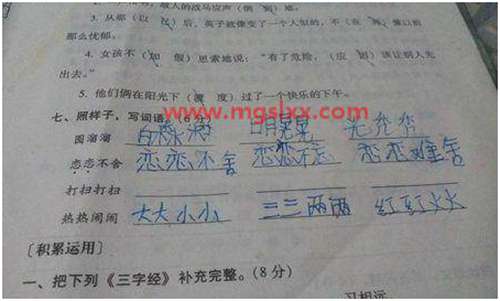 敌人的战马应声（倒 到）地。
3. 从那（以 已）后，英子就像变了一个人似的，不（在 再）像以前
那么忧郁。
4. 女孩不（加 假）思索地说：“有了危险，（应 因）该让别人先
出去。”
5. 他们俩在阳光下（渡 度）过了一个快乐的下午。
www.mgslxx.com
七、照样子，写词语。（8分）
圆溜溜 白 明晃晃 光秃秃
恋恋不舍 恋恋不舍 恋恋不忘 恋恋难舍
打扫打扫
热热闹闹 大大小小 三三两两 红红火火
〔积累运用〕
一、把下列《三字经》补充完整。（8分）
习相远